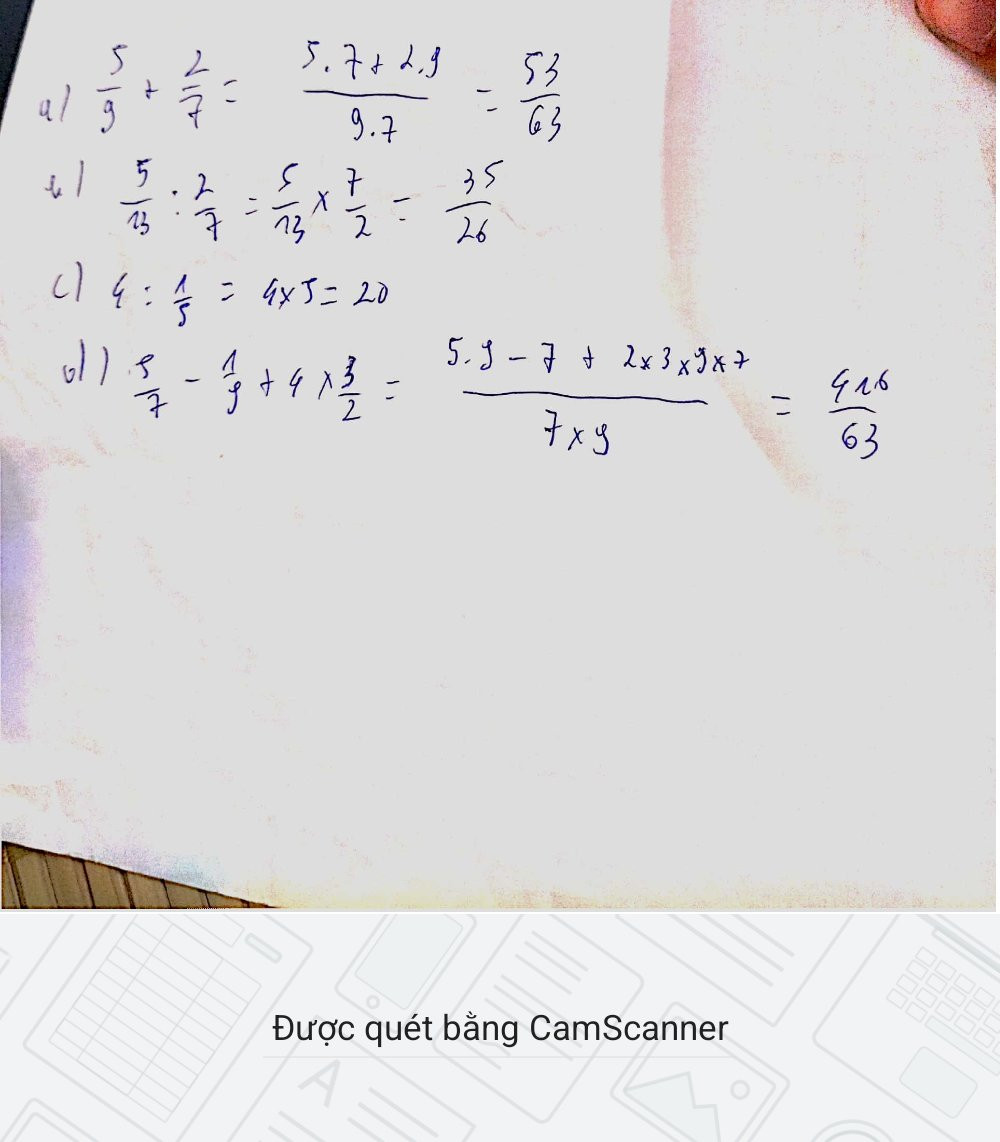 a) 5/9 + 2/7 = (5.7 + 2.9)/(9.7) = 53/63
b) 5/13 : 2/7 = 5/13 x 7/2 = 35/26
c) 4 : 1/5 = 4x5 = 20
d) 5/7 - 1/9 + 4 x 3/2 = (5.9 - 7 + 2x3x9x7)/(7x9) = 416/63
Được quét bằng CamScanner